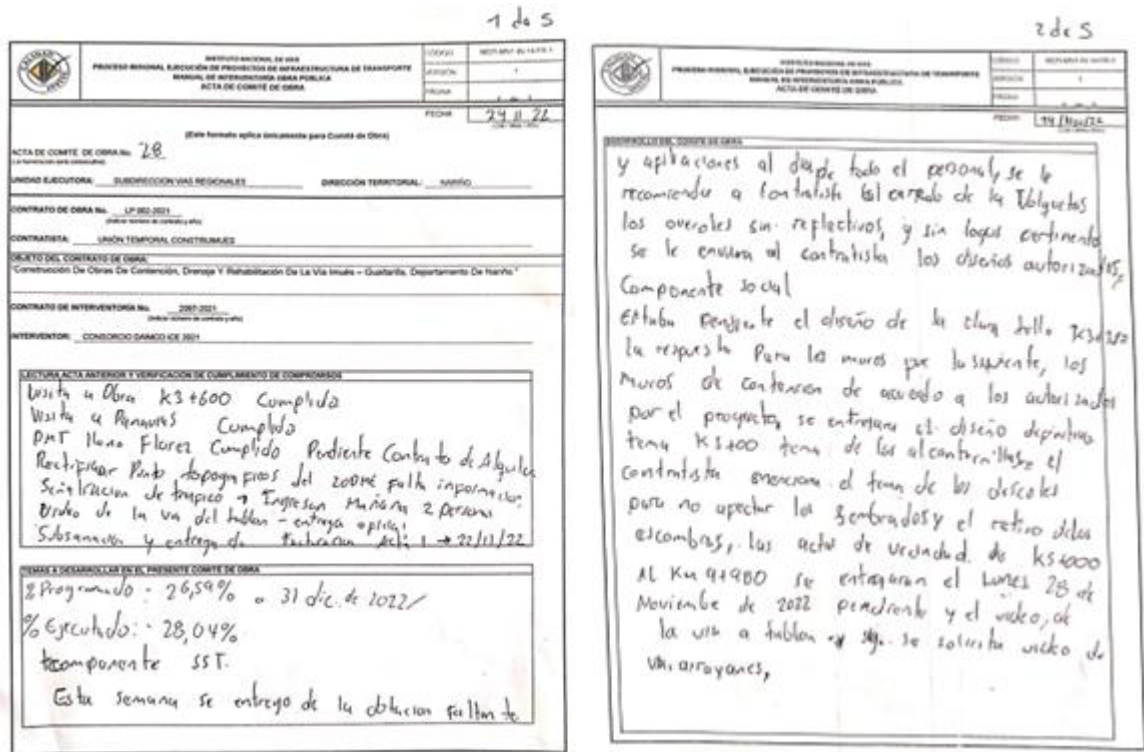 1 de 5
INSTITUTO NACIONAL DE VIAS
PROCESO MISIONAL EJECUCIÓN DE PROYECTOS DE INFRAESTRUCTURA DE TRANSPORTE
MANUAL DE INTERVENTORÍA OBRA PÚBLICA
ACTA DE COMITÉ DE OBRA
CÓDIGO
VERSIÓN 1
PÁGINA
FECHA 24 11 22
(Este formato aplica únicamente para Comité de Obra)
ACTA DE COMITÉ DE OBRA No. 28
UNIDAD EJECUTORA: SUBDIRECCION VIAS REGIONALES DIRECCIÓN TERRITORIAL: NARIÑO
CONTRATO DE OBRA No. LP 002-2021
(Indicar número de contrato y año)
CONTRATISTA: UNIÓN TEMPORAL CONSTRUIMUES
OBJETO DEL CONTRATO DE OBRA:
"Construcción De Obras De Contención, Drenaje Y Rehabilitación De La Via Imués – Guaitarilla, Departamento De Nariño."
CONTRATO DE INTERVENTORÍA No. 2067-2021
(Indicar número de contrato y año)
INTERVENTOR: CONSORCIO DAIMCO ICE 2021
LECTURA ACTA ANTERIOR Y VERIFICACIÓN DE CUMPLIMIENTO DE COMPROMISOS
Visita a Obra K3+600 Cumplida
Visita a Cumplida
PMT Florez Cumplido Pendiente Contrato de Alquiler
Rectificar Punto topograficos del falta información
de trafico Ingresan Mañana 2 personas
Video de la via del tablon - entrega
Subsanación y entrega de Facturacion Acta 1 → 22/11/22
TEMAS A DESARROLLAR EN EL PRESENTE COMITÉ DE OBRA
% Programado - 26,59% a 31 dic. de 2022/
% Ejecutado: - 28,04%
componente SST.
Esta semana se entrego de la dotacion faltante
2 de 5
INSTITUTO NACIONAL DE VIAS
PROCESO MISIONAL EJECUCIÓN DE PROYECTOS DE INFRAESTRUCTURA DE TRANSPORTE
MANUAL DE INTERVENTORÍA OBRA PÚBLICA
ACTA DE COMITÉ DE OBRA
CÓDIGO
VERSIÓN 1
PÁGINA
FECHA 24/Nov/22
DESARROLLO DEL COMITÉ DE OBRA
y afiliaciones al dia de todo el personal, se le
recomienda a Contratista el de la Volquetas
los overoles sin reflectivos, y sin logos
se le enviara al contratista los diseños autorizados,
Componente social
Estaba pendiente el diseño de la
la respuesta Para los muros fue la siguiente, los
Muros de contencion de acuerdo a los autorizados
por el proyecto, se entregara el diseño definitivo
tema tema de las alcantarillas, el
contratista menciona el tema de los descoles
para no afectar los sembrados y el retiro de los
escombros, las actas de vecindad de K5+000
Al Km 9+980 se entregaran el Lunes 28 de
Noviembre de 2022 pendiente y el video, de
la via a tablon se solicita video de
via arrayanes,